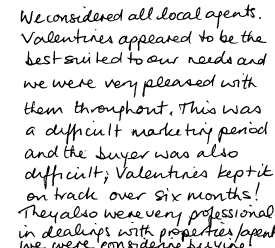 We considered all local agents.
Valentines appeared to be the
best suited to our needs and
we were very pleased with
them throughout. This was
a difficult marketing period
and the buyer was also
difficult; Valentines kept it
on track over six months!
They also were very professional
in dealings with properties/agents
we were considering buying!